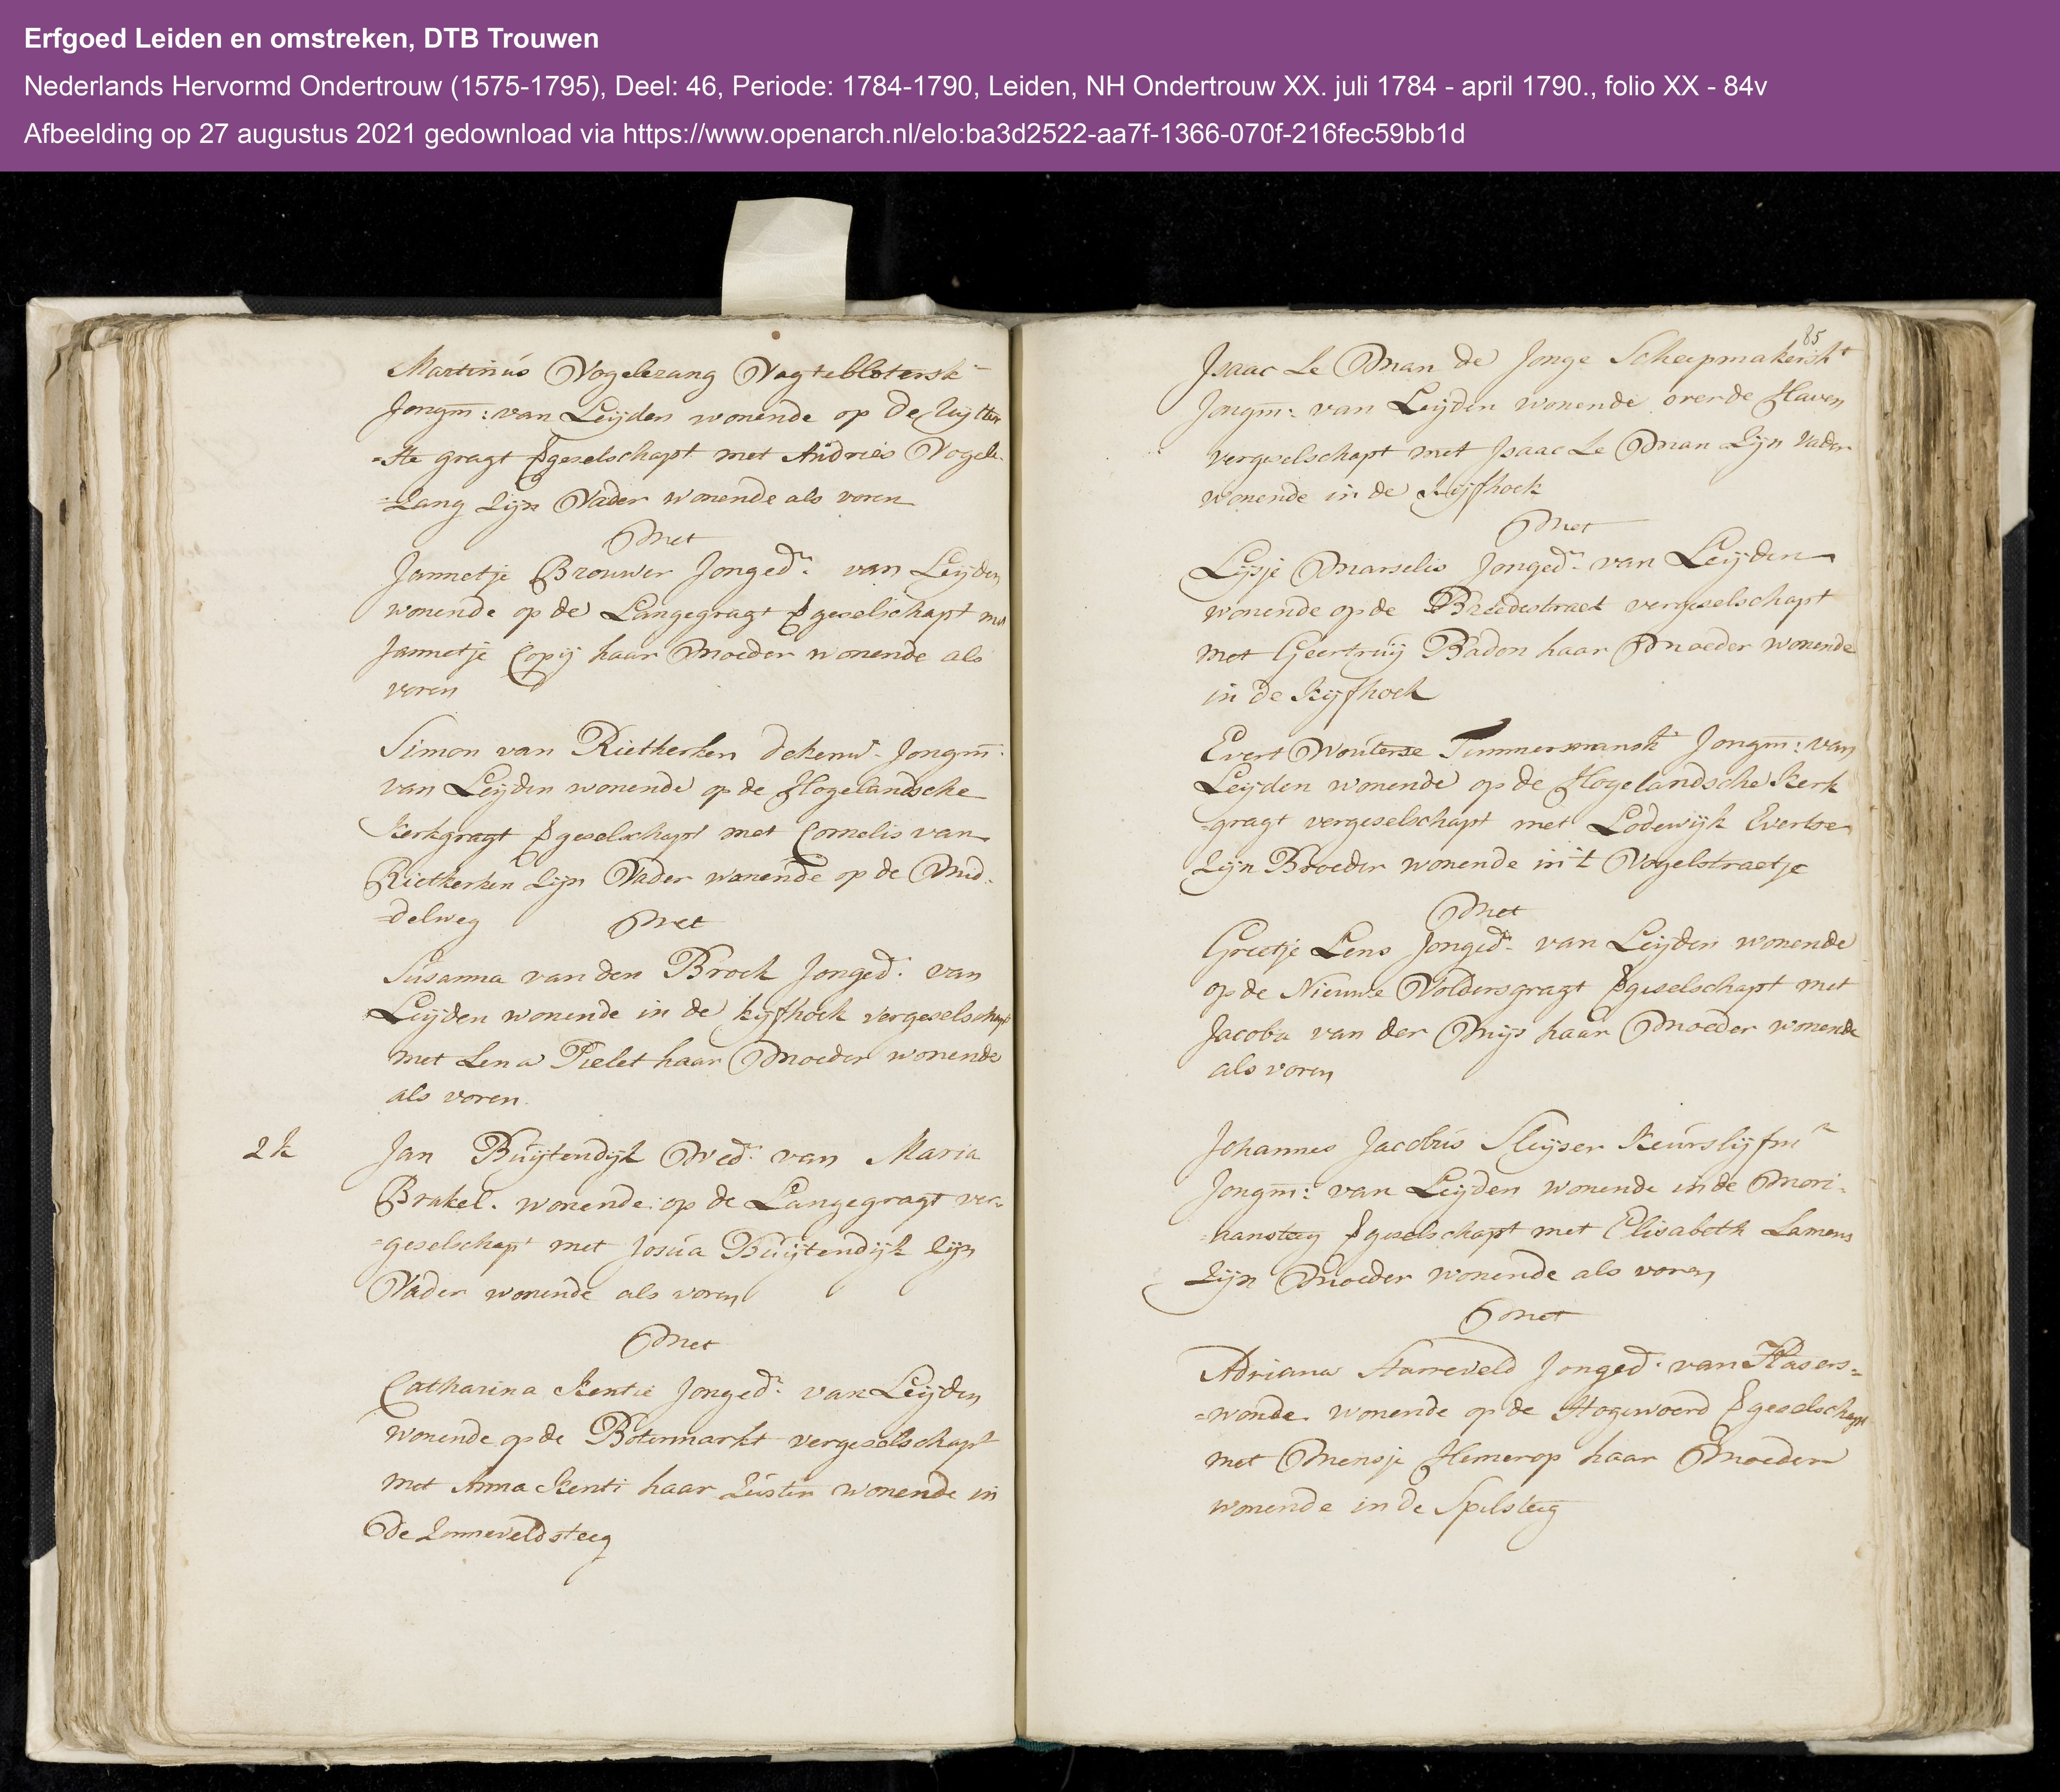 Erfgoed Leiden en omstreken, DTB Trouwen
Nederlands Hervormd Ondertrouw (1575-1795), Deel: 46, Periode: 1784-1790, Leiden, NH Ondertrouw XX. juli 1784 - april 1790., folio XX - 84v
Afbeelding op 27 augustus 2021 gedownload via https://www.openarch.nl/elo:ba3d2522-aa7f-1366-070f-216fec59bb1d
Martinus Vogelezang Vagteblotersk
Jongm: van Leijden wonende op de Uijtter
=ste gragt vgeselschapt met Andries Vogele-
=zang zijn Vader wonende als voren
Met
Jannetje Brouwer Jonged: van Leijden
wonende op de Langegragt vgeselschapt met
Jannetje Copij haar Moeder wonende als
voren
Simon van Rietkerken Jongm:
van Leijden wonende op de Hogelandsche
Kerkgragt vgeselschapt met Cornelis van
Rietkerken zijn Vader wonende op de Mid-
=delweg Met
Susanna van den Broek Jonged: van
Leijden wonende in de kijfhoek vergeselschapt
met Lena Pielet haar Moeder wonende
als voren.
2 k Jan Buijtendijk Wed: van Maria
Brakel. wonende op de Langegragt ver-
=geselschapt met Josua Buijtendijk zijn
Vader wonende als voren
Met
Catharina Kentie Jonged: van Leijden
wonende op de Botermarkt vergeselschapt
met Anna Kenti haar Zuster wonende in
de Zonneveldsteeg
85
Isaac Le Man de Jonge Scheepmakerskt
Jongm: van Leijden wonende over de Haven
vergeselschapt met Isaac Le Man zijn Vader
wonende in de Kijfhoek
Met
Lijsje Marselis Jonged: van Leijden
wonende op de Breedestraet vergeselschapt
met Geertruij Badon haar Moeder wonende
in de Kijfhoek
Evert Wouterse Timmermanskt Jongm: van
Leijden wonende op de Hogelandsche Kerk
=gragt vergeselschapt met Lodewijk Evertse
zijn Broeder wonende in 't Vogelstraetje
Met
Grietje Lens Jonged: van Leijden wonende
op de Nieuwe Voldersgragt vgeselschapt met
Jacoba van der Mijs haar Moeder wonende
als voren
Johannes Jacobus Sleijser Keurslijfmr
Jongm: van Leijden wonende in de Mori-
=aansteeg vgeselschapt met Elisabeth Lamens
zijn Moeder wonende als voren
Met
Adriana Starreveld Jonged: van Hasers=
=wonde. wonende op de Hogewoerd vgeselschapt
met Mensje Hemerop haar Moeder
wonende in de Spilsteeg